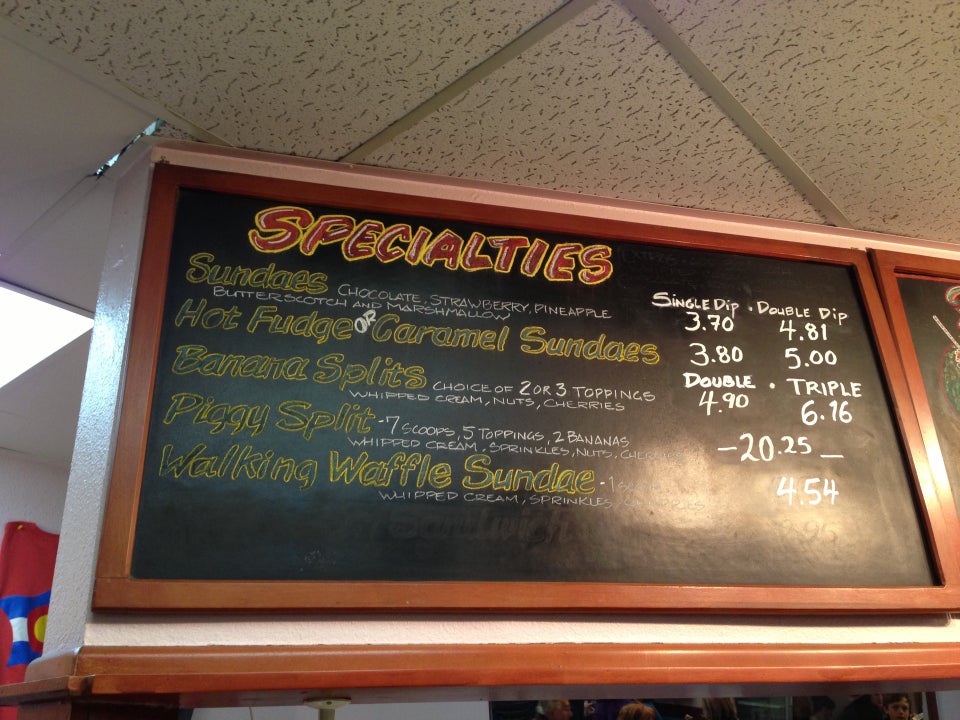 SPECIALTIES
Sundaes CHOCOLATE, STRAWBERRY, PINEAPPLE
BUTTERSCOTCH AND MARSHMALLOW
SINGLE DIP . DOUBLE DIP
3.70 4.81
Hot Fudge OR Caramel Sundaes 3.80 5.00
DOUBLE . TRIPLE
Banana Splits CHOICE OF 2 OR 3 TOPPINGS 4.90 6.16
WHIPPED CREAM, NUTS, CHERRIES
Piggy Split - 7 SCOOPS, 5 TOPPINGS, 2 BANANAS - 20.25 -
WHIPPED CREAM, SPRINKLES, NUTS, CHERRIES
Walking Waffle Sundae - 1 4.54
WHIPPED CREAM, SPRINKLES
Sandwich